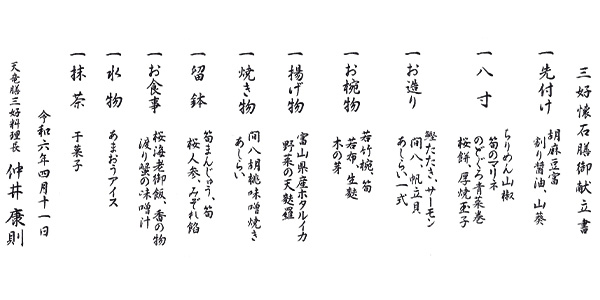 三好懐石膳御献立書
一先付け
胡麻豆富
割り醤油、山葵
一八寸
ちりめん山椒
筍のマリネ
のどぐろ青菜巻
桜餅、厚焼玉子
一お造り
鰹たたき、サーモン
間八、帆立貝
あしらい一式
一お椀物
若竹椀、筍
若布、生麩
木の芽
一揚げ物
富山県産ホタルイカ
野菜の天麩羅
一焼き物
間八胡桃味噌焼き
あしらい
一留鉢
筍まんじゅう、筍
桜人参、みぞれ餡
一お食事
桜海老御飯、香の物
渡り蟹の味噌汁
一水物
あまおうアイス
一抹茶
干菓子
令和六年四月十一日
天竜膳三好料理長 仲井康則